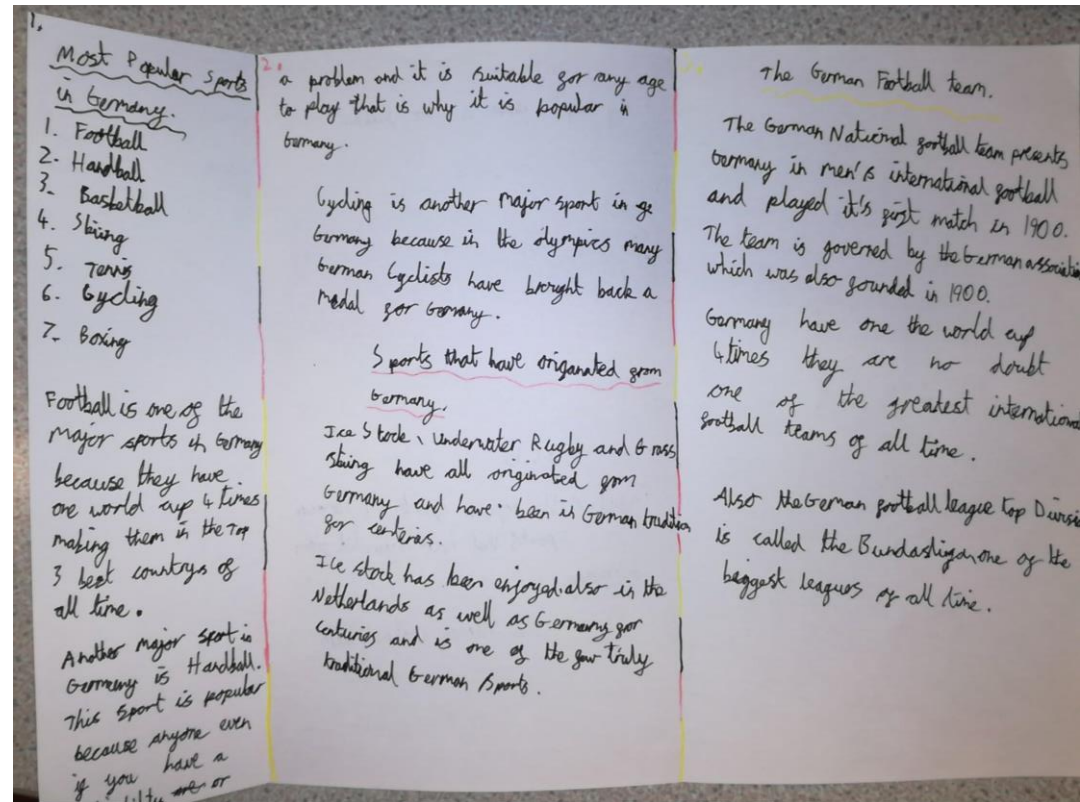 1,
Most Popular Sports
in Germany.
1. Football
2- Handball
3- Basketball
4. Skiing
5. Tennis
6. Cycling
7- Boxing
Football is one of the
major sports in Germany
because they have
one world cup 4 times
making them in the Top
3 best countrys of
all time.
Another major sport in
Germany is Handball.
This sport is popular
because anyone even
if you have a
or
2.
a problem and it is suitable for any age
to play that is why it is popular in
Germany.
Cycling is another major sport in ge
Germany because in the olympics many
German Cyclists have brought back a
medal for Germany.
Sports that have origanated from
Germany.
Ice Stock, underwater Rugby and Grass
skiing have all originated from
Germany and have been in German tradition
for centeries.
Ice stock has been enjoyed also in the
Netherlands as well as Germany for
centuries and is one of the few truly
traditional German Sports.
3.
The German Football team.
The German National football team presents
Germany in men's international football
and played it's first match in 1900.
The team is governed by the German associatio
which was also founded in 1900.
Germany have one the world cup
4 times they are no doubt
one of the greatest international
football teams of all time.
Also the German football league top Divisi
is called the Bundasliga, one of the
biggest leagues of all time.